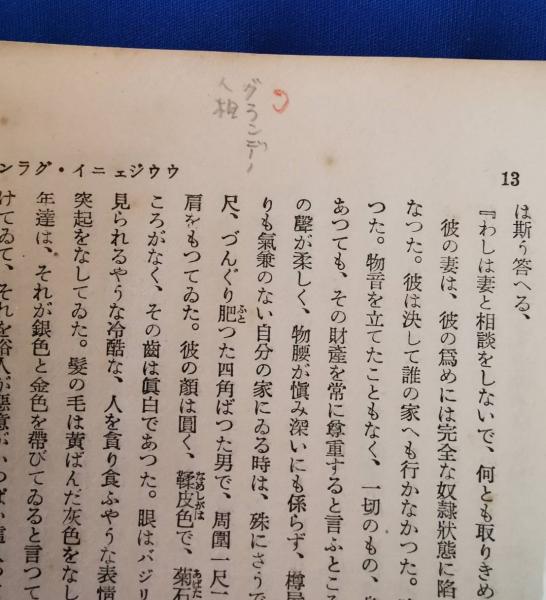 グランデーノ
人相
13
ウウジェニイ・グラン
は斯う答へる、
『わしは妻と相談をしないで、何とも取りきめ
彼の妻は、彼の爲めには完全な奴隷狀態に陷
なつた。彼は決して誰の家へも行かなかつた。
つた。物音を立てたこともなく、一切のもの、
あつても、その財產を常に尊重すると言ふところ
の聲が柔しく、物腰が愼み深いにも係らず、樽屋
りも氣兼のない自分の家にゐる時は、殊にさうで
尺、づんぐり肥ふとつた四角ばつた男で、周圍一尺二
肩をもつてゐた。彼の顏は圓く、鞣皮色なめしがはで、菊石あばた
ころがなく、その齒は眞白であつた。眼はバジリ
見られるやうな冷酷な、人を貪り食ふやうな表情
突起をなしてゐた。髮の毛は黃ばんだ灰色をなし
年達は、それが銀色と金色を帶びてゐると言つて
けてゐて、それを俗人が惡意が